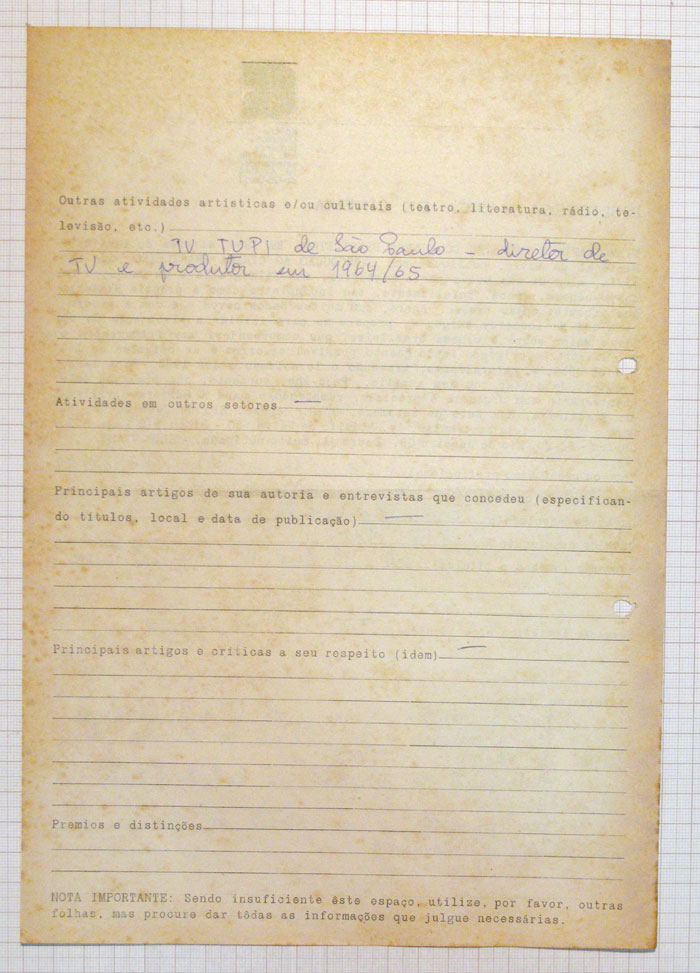 Outras atividades artísticas e/ou culturais (teatro, literatura, rádio, te-
levisão, etc.)
TV TUPI de São Paulo - diretor de
TV e produtor em 1964/65
Atividades em outros setores —
Principais artigos de sua autoria e entrevistas que concedeu (especifican-
do títulos, local e data de publicação) —
Principais artigos e críticas a seu respeito (idem) —
Premios e distinções
NOTA IMPORTANTE: Sendo insuficiente êste espaço, utilize, por favor, outras
folhas, mas procure dar tôdas as informações que julgue necessárias.